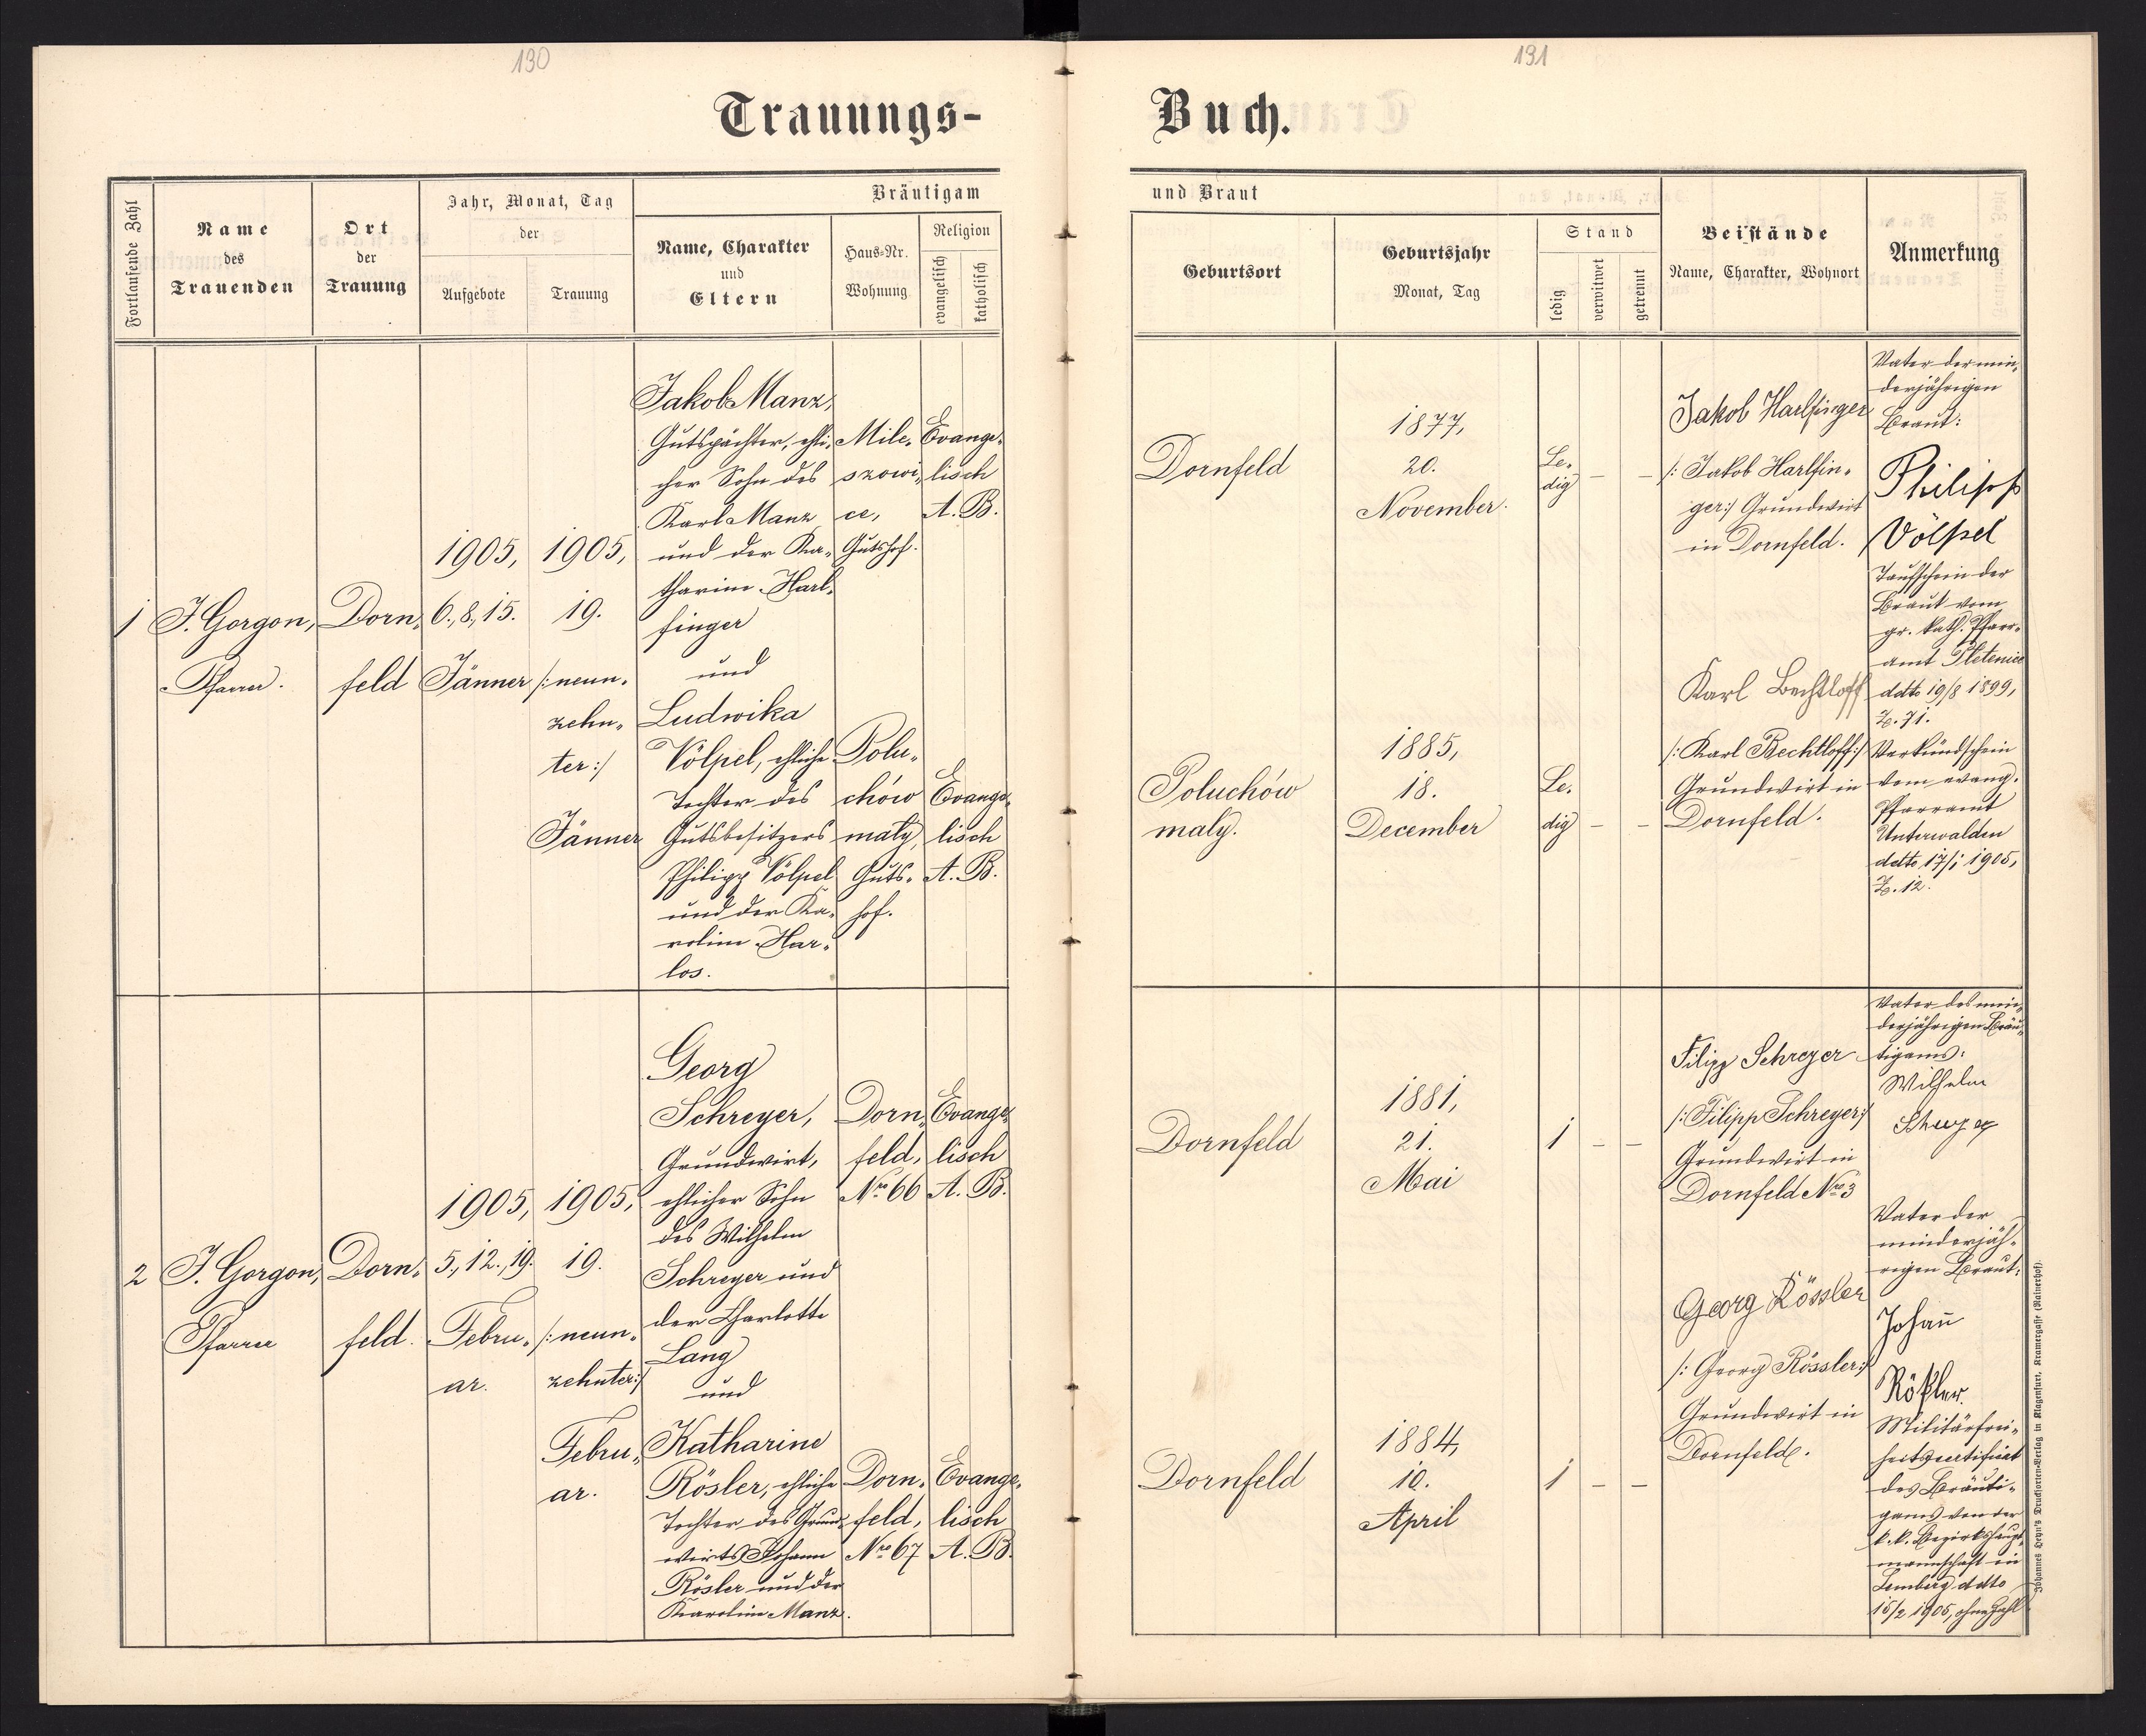 130
131
Trauungs-
Buch.
Fortlaufende Zahl
Name
des
Trauenden
Ort
der
Trauung
Jahr, Monat, Tag
der
Aufgebote
Trauung
Bräutigam
Name, Charakter
und
Eltern
Haus-Nr.
Wohnung
Religion
evangelisch
katholisch
und Braut
Geburtsort
Geburtsjahr
Monat, Tag
Stand
ledig
verwitwet
getrennt
Beistände
Name, Charakter, Wohnort
Anmerkung
1
J. Gorgon,
Pfarrer.
Dorn-
feld
1905,
6., 8., 15.
Jänner
1905,
19.
/: neun-
zehn-
ter :/
Jänner
Jakob Manz,
Gutspächter, ehli-
cher Sohn des
Karl Manz
und der Ka-
tharine Harl-
finger
und
Ludwika
Völpel, ehliche
Tochter des
Gutsbesitzers
Philipp Völpel
und der Ka-
roline Har-
los.
Mile-
szowi-
ce,
Gutshof.
Evange-
lisch
A. B.
Polu-
chów
mały,
Guts-
hof.
Evange-
lisch
A. B.
Dornfeld
1877,
20.
November.
Le-
dig
— —
Poluchów
mały.
1885,
18.
December
Le-
dig
— —
Jakob Harlfinger
/: Jakob Harlfin-
ger :/ Grundwirt
in Dornfeld.
Karl Bechtloff
/: Karl Bechtloff :/
Grundwirt in
Dornfeld.
Vater der min-
derjährigen
Braut:
Philipp
Völpel
Taufschein der
Braut vom
gr. kath. Pfarr-
amt Pletenice
ddto 19/8 1899,
Z. 71.
Verkündschein
vom evang.
Pfarramt
Unterwalden
ddto 17/1 1905,
Z. 12.
2
J. Gorgon,
Pfarrer
Dorn-
feld.
1905,
5., 12., 19.
Febru-
ar.
1905,
19.
/: neun-
zehnter :/
Febru-
ar.
Georg
Schreyer,
Grundwirt,
ehlicher Sohn
des Wilhelm
Schreyer und
der Charlotte
Lang
und
Katharine
Rösler, ehliche
Tochter des Grund-
wirts Johann
Rösler und der
Karoline Manz.
Dorn-
feld,
Nro 66
Evange-
lisch
A. B.
Dorn-
feld,
Nro 67
Evange-
lisch
A. B.
Dornfeld
1881,
21.
Mai
1 — —
Dornfeld
1884,
10.
April
1 — —
Filipp Schreyer
/: Filipp Schreyer :/
Grundwirt in
Dornfeld Nro 3
Georg Rössler
/: Georg Rössler :/
Grundwirt in
Dornfeld.
Vater des min-
derjährigen Bräu-
tigams:
Wilhelm
Vater der
minderjäh-
rigen Braut:
Johañ
Rößler.
Militärfrei-
heitszertifikat
des Bräuti-
gams von der
k. k. Bezirkshaupt-
mannschaft in
Lemberg ddto
15/2 1905, ohne Zahl
Johannes Heyn's Drucksorten-Verlag in Klagenfurt, Kramergasse (Rainerhof).